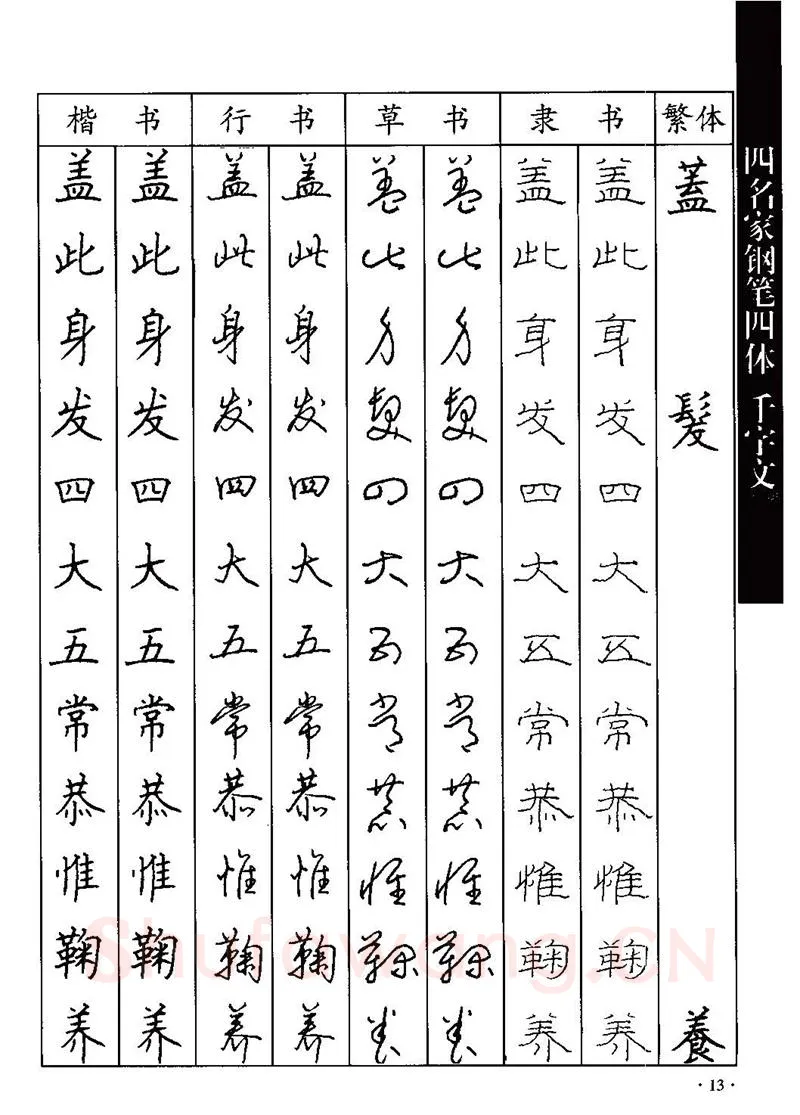 楷书 行书 草书 隶书 繁体
盖 盖 盖 盖 盖 盖 盖 盖 蓋
此 此 此 此 此 此 此 此
身 身 身 身 身 身 身 身
发 发 发 发 发 发 发 发 髮
四 四 四 四 四 四 四 四
大 大 大 大 大 大 大 大
五 五 五 五 五 五 五 五
常 常 常 常 常 常 常 常
恭 恭 恭 恭 恭 恭 恭 恭
惟 惟 惟 惟 惟 惟 惟 惟
鞠 鞠 鞠 鞠 鞠 鞠 鞠 鞠
养 养 养 养 养 养 养 养 養
四名家钢笔四体 千字文
Shufawang.CN
·13·